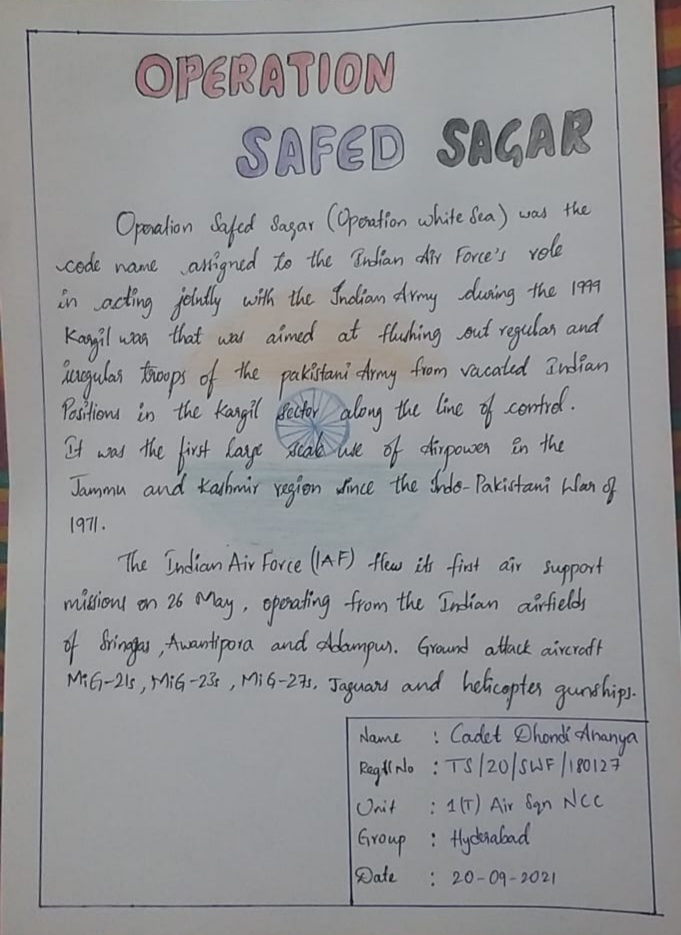 OPERATION
SAFED SAGAR
Operation Safed Sagar (Operation white Sea) was the
code name assigned to the Indian Air Force's role
in acting jointly with the Indian Army during the 1999
Kargil war that was aimed at flushing out regular and
irregular troops of the pakistani Army from vacated Indian
Positions in the Kargil sector along the line of control.
It was the first large scale use of airpower in the
Jammu and Kashmir region since the Indo-Pakistani War of
1971.
The Indian Air Force (IAF) flew its first air support
missions on 26 May, operating from the Indian airfields
of Srinagar, Awantipora and Adampur. Ground attack aircraft
MiG-21s, MiG-23s, MiG-27s, Jaguars and helicopter gunships.
Name : Cadet Dhondi Ananya
Regtl No : TS/20/SWF/180127
Unit : 1(T) Air Sqn NCC
Group : Hyderabad
Date : 20-09-2021